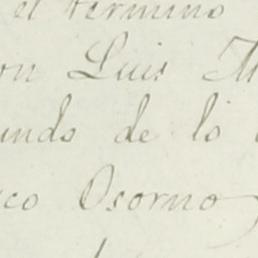 el termino
on Luis
de lo
co Osorno